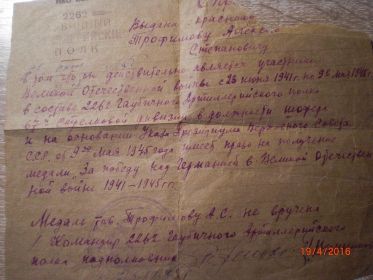 2262
ПОЛК
Выдана красноар
Трофимову Алексею
Степановичу
в том что он действительно является участник
Великой Отечественной войны с 23 июня 1941 г. по 9 мая 1945
в составе 2262 Гаубичного Артиллерийского полка
67й Стрелковой дивизии в должности шофера
и на основании Указа Президиума Верховного Совета
СССР от 9го Мая 1945 года имеет право на получение
медали, За победу над Германией в Великой Отечествен
ной войне 1941-1945 гг.
Медаль тов. Трофимову А.С. не вручена
Командир 2262 Гаубичного Артиллерийского
полка подполковник
19/4/2016